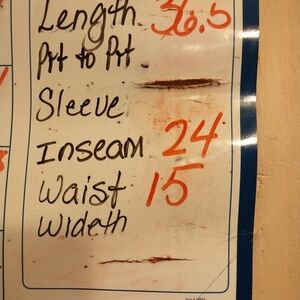 Length 36.5
Pit to Pit
Sleeve
Inseam 24
Waist 15
Wideth